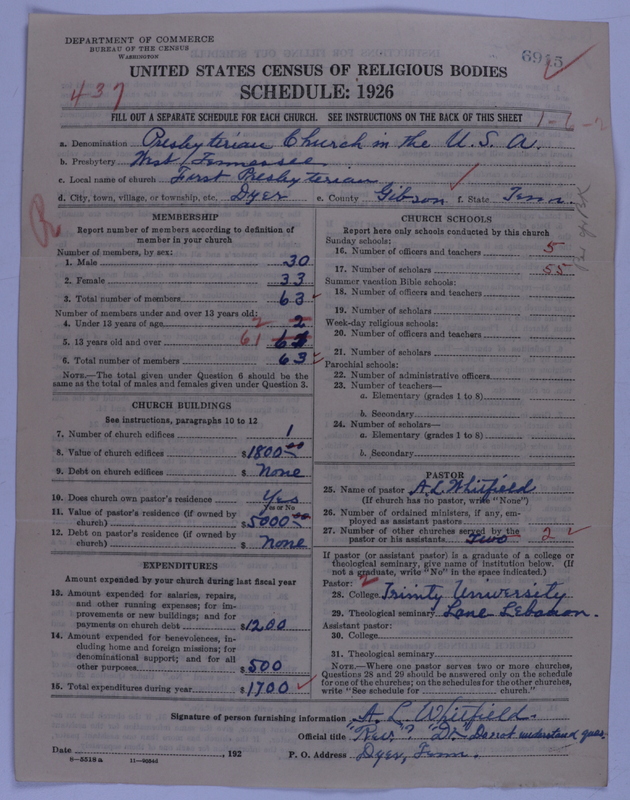 DEPARTMENT OF COMMERCE
BUREAU OF THE CENSUS
WASHINGTON
6915
UNITED STATES CENSUS OF RELIGIOUS BODIES
437
SCHEDULE: 1926
FILL OUT A SEPARATE SCHEDULE FOR EACH CHURCH. SEE INSTRUCTIONS ON THE BACK OF THIS SHEET
1-7-2
a. Denomination Presbyterian Church in the U. S. A.
b. Presbytery West Tennessee
c. Local name of church First Presbyterian
d. City, town, village, or township, etc. Dyer e. County Gibson f. State Tenn.
MEMBERSHIP
Report number of members according to definition of
member in your church
Number of members, by sex:
1. Male 30
2. Female 33
3. Total number of members 63
Number of members under and over 13 years old:
4. Under 13 years of age 2 2
5. 13 years old and over 61 61
6. Total number of members 63
NOTE.—The total given under Question 6 should be
the same as the total of males and females given under Question 3.
CHURCH BUILDINGS
See instructions, paragraphs 10 to 12
7. Number of church edifices 1
8. Value of church edifices $1800 00
9. Debt on church edifices $ None
10. Does church own pastor's residence Yes
Yes or No
11. Value of pastor's residence (if owned by
church) $5000 00
12. Debt on pastor's residence (if owned by
church) $ None
EXPENDITURES
Amount expended by your church during last fiscal year
13. Amount expended for salaries, repairs,
and other running expenses; for im-
provements or new buildings; and for
payments on church debt $1200
14. Amount expended for benevolences, in-
cluding home and foreign missions; for
denominational support; and for all
other purposes $500
15. Total expenditures during year $1700
CHURCH SCHOOLS
Report here only schools conducted by this church
Sunday schools:
16. Number of officers and teachers 5
17. Number of scholars 55
Summer vacation Bible schools:
18. Number of officers and teachers
19. Number of scholars
Week-day religious schools:
20. Number of officers and teachers
21. Number of scholars
Parochial schools:
22. Number of administrative officers
23. Number of teachers—
a. Elementary (grades 1 to 8)
b. Secondary
24. Number of scholars—
a. Elementary (grades 1 to 8)
b. Secondary
PASTOR
25. Name of pastor A. L. Whitfield
(If church has no pastor, write "None")
26. Number of ordained ministers, if any, em-
ployed as assistant pastors
27. Number of other churches served by the
pastor or his assistants Two 2
If pastor (or assistant pastor) is a graduate of a college or
theological seminary, give name of institution below. (If
not a graduate, write "No" in the space indicated.)
Pastor:
28. College Trinity University
29. Theological seminary Lane Lebanon.
Assistant pastor:
30. College
31. Theological seminary
NOTE.—Where one pastor serves two or more churches,
Questions 28 and 29 should be answered only on the schedule
for one of the churches; on the schedules for the other churches,
write "See schedule for church."
Signature of person furnishing information A. L. Whitfield.
Official title "Rev."? "Dr." Do not understand ques.
Date , 192 P. O. Address Dyer, Tenn.
8-5518a 11-9034d